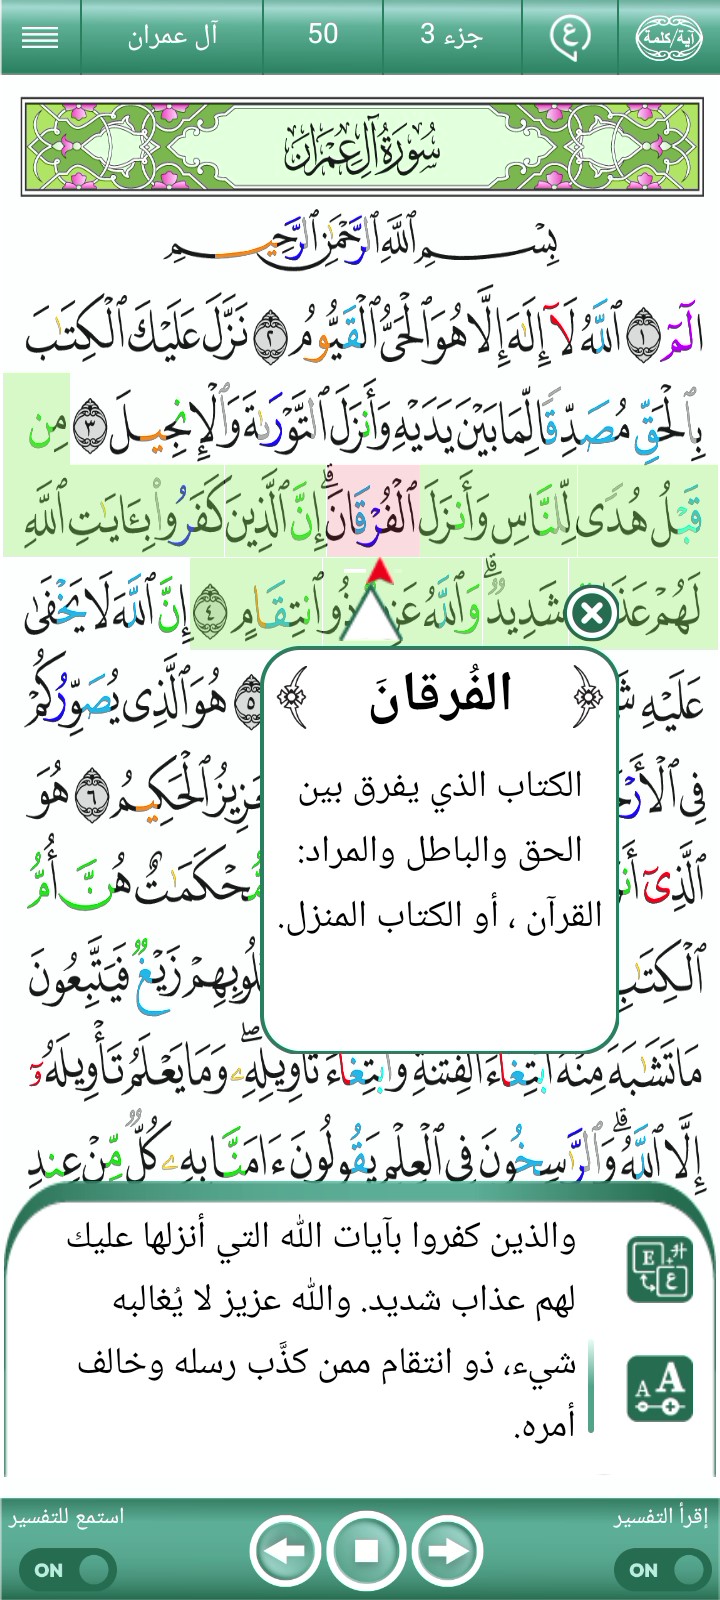 آية/كلمة
ع
جزء 3
50
آل عمران
سُورَةُ آلِ عِمْرَانَ
بِسْمِ ٱللَّهِ ٱلرَّحْمَٰنِ ٱلرَّحِيمِ
الٓمٓ ١ ٱللَّهُ لَآ إِلَٰهَ إِلَّا هُوَ ٱلْحَىُّ ٱلْقَيُّومُ ٢ نَزَّلَ عَلَيْكَ ٱلْكِتَٰبَ
بِٱلْحَقِّ مُصَدِّقًا لِّمَا بَيْنَ يَدَيْهِ وَأَنزَلَ ٱلتَّوْرَىٰةَ وَٱلْإِنجِيلَ ٣ مِن
قَبْلُ هُدًى لِّلنَّاسِ وَأَنزَلَ ٱلْفُرْقَانَ ۗ إِنَّ ٱلَّذِينَ كَفَرُوا۟ بِـَٔايَٰتِ ٱللَّهِ
لَهُمْ عَذَا شَدِيدٌ ۗ وَٱللَّهُ عَزِ ذُو ٱنتِقَامٍ ٤ إِنَّ ٱللَّهَ لَا يَخْفَىٰ
عَلَيْهِ شَ ٥ هُوَ ٱلَّذِى يُصَوِّرُكُمْ
فِى ٱلْأَرْحَ ٱلْحَكِيمُ ٦ هُوَ
ٱلَّذِىٓ أَن مُّحْكَمَٰتٌ هُنَّ أُمُّ
ٱلْكِتَٰبِ لُوبِهِمْ زَيْغٌ فَيَتَّبِعُونَ
مَا تَشَٰبَهَ مِنْهُ ٱبْتِغَآءَ ٱلْفِتْنَةِ وَٱبْتِغَآءَ تَأْوِيلِهِۦ ۖ وَمَا يَعْلَمُ تَأْوِيلَهُۥٓ
إِلَّا ٱللَّهُ ۗ وَٱلرَّٰسِخُونَ فِى ٱلْعِلْمِ يَقُولُونَ ءَامَنَّا بِهِۦ كُلٌّ مِّنْ عِندِ
الفُرقانَ
الكتاب الذي يفرق بين
الحق والباطل والمراد:
القرآن ، أو الكتاب المنزل.
والذين كفروا بآيات الله التي أنزلها عليك
لهم عذاب شديد. والله عزيز لا يُغالبه
شيء، ذو انتقام ممن كذَّب رسله وخالف
أمره.
E ع
A A
إقرأ التفسير
ON
استمع للتفسير
ON